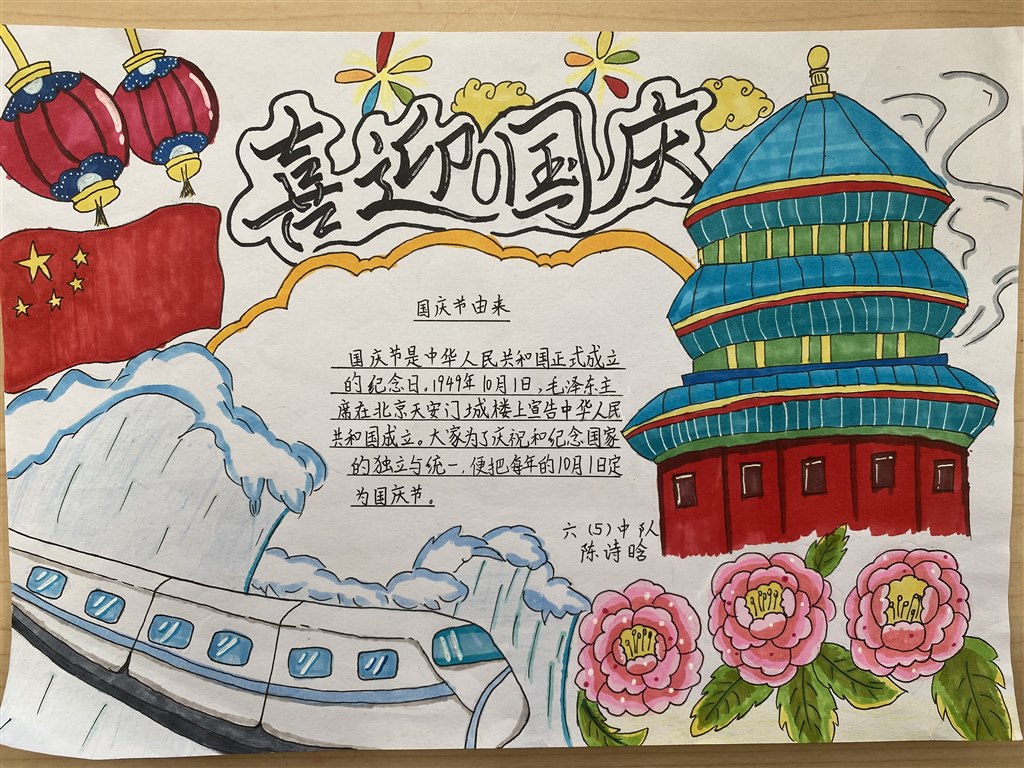 喜迎国庆
国庆节由来
国庆节是中华人民共和国正式成立
的纪念日。1949年10月1日，毛泽东主
席在北京天安门城楼上宣告中华人民
共和国成立。大家为了庆祝和纪念国家
的独立与统一，便把每年的10月1日定
为国庆节。
六（5）中队
陈诗晗